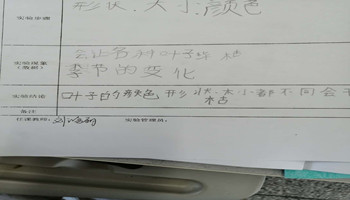 形状、大小、颜色
实验步骤
会让各种叶子
实验现象
季节的变化
实验结论 叶子的颜色形状、大小都不同会
枯
备注
任课教师: 实验管理员: